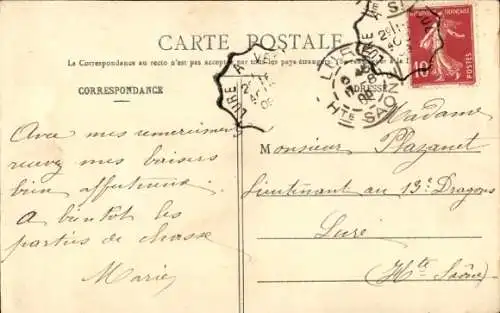 CARTE POSTALE
La Correspondance au recto n'est pas acceptée par tous les pays étrangers.
CORRESPONDANCE
ADRESSE
Avec mes remerciements
recevez mes baisers
bien affectueux
A bientôt les
parties de chasse
Marie
Madame
Monsieur Plazanet
Lieutenant au 13e Dragons
Lure
(Hte Saône)
FRANÇAISE
POSTES
10
LURE A
Hte SAONE